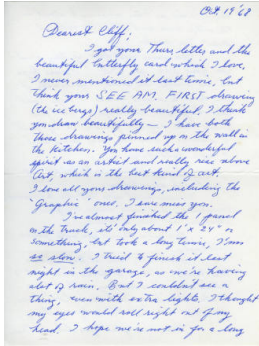 Oct. 19 '68
Dearest Cliff,
I got your Thurs letter and the
beautiful butterfly card which I love.
I never mentioned it last time, but
think your SEE AM, FIRST drawing
(the ice bergs) really beautiful, I think
you draw beautifully – I have both
those drawings pinned up on the wall in
the kitchen. You have such a wonderful
spirit as an artist and really rise above
Art, which is the best kind of art.
I love all your drawings, including the
'Graphic' ones. I sure miss you.
I've almost finished the 1 panel
on the truck, its' only about 1' x 24" or
something, but took a long time, I'm
so slow. I tried to finish it last
night in the garage, as we're having
alot of rain. But I couldn't see a
thing, even with extra lights. I thought
my eyes would roll right out of my
head. I hope we're not in for a long